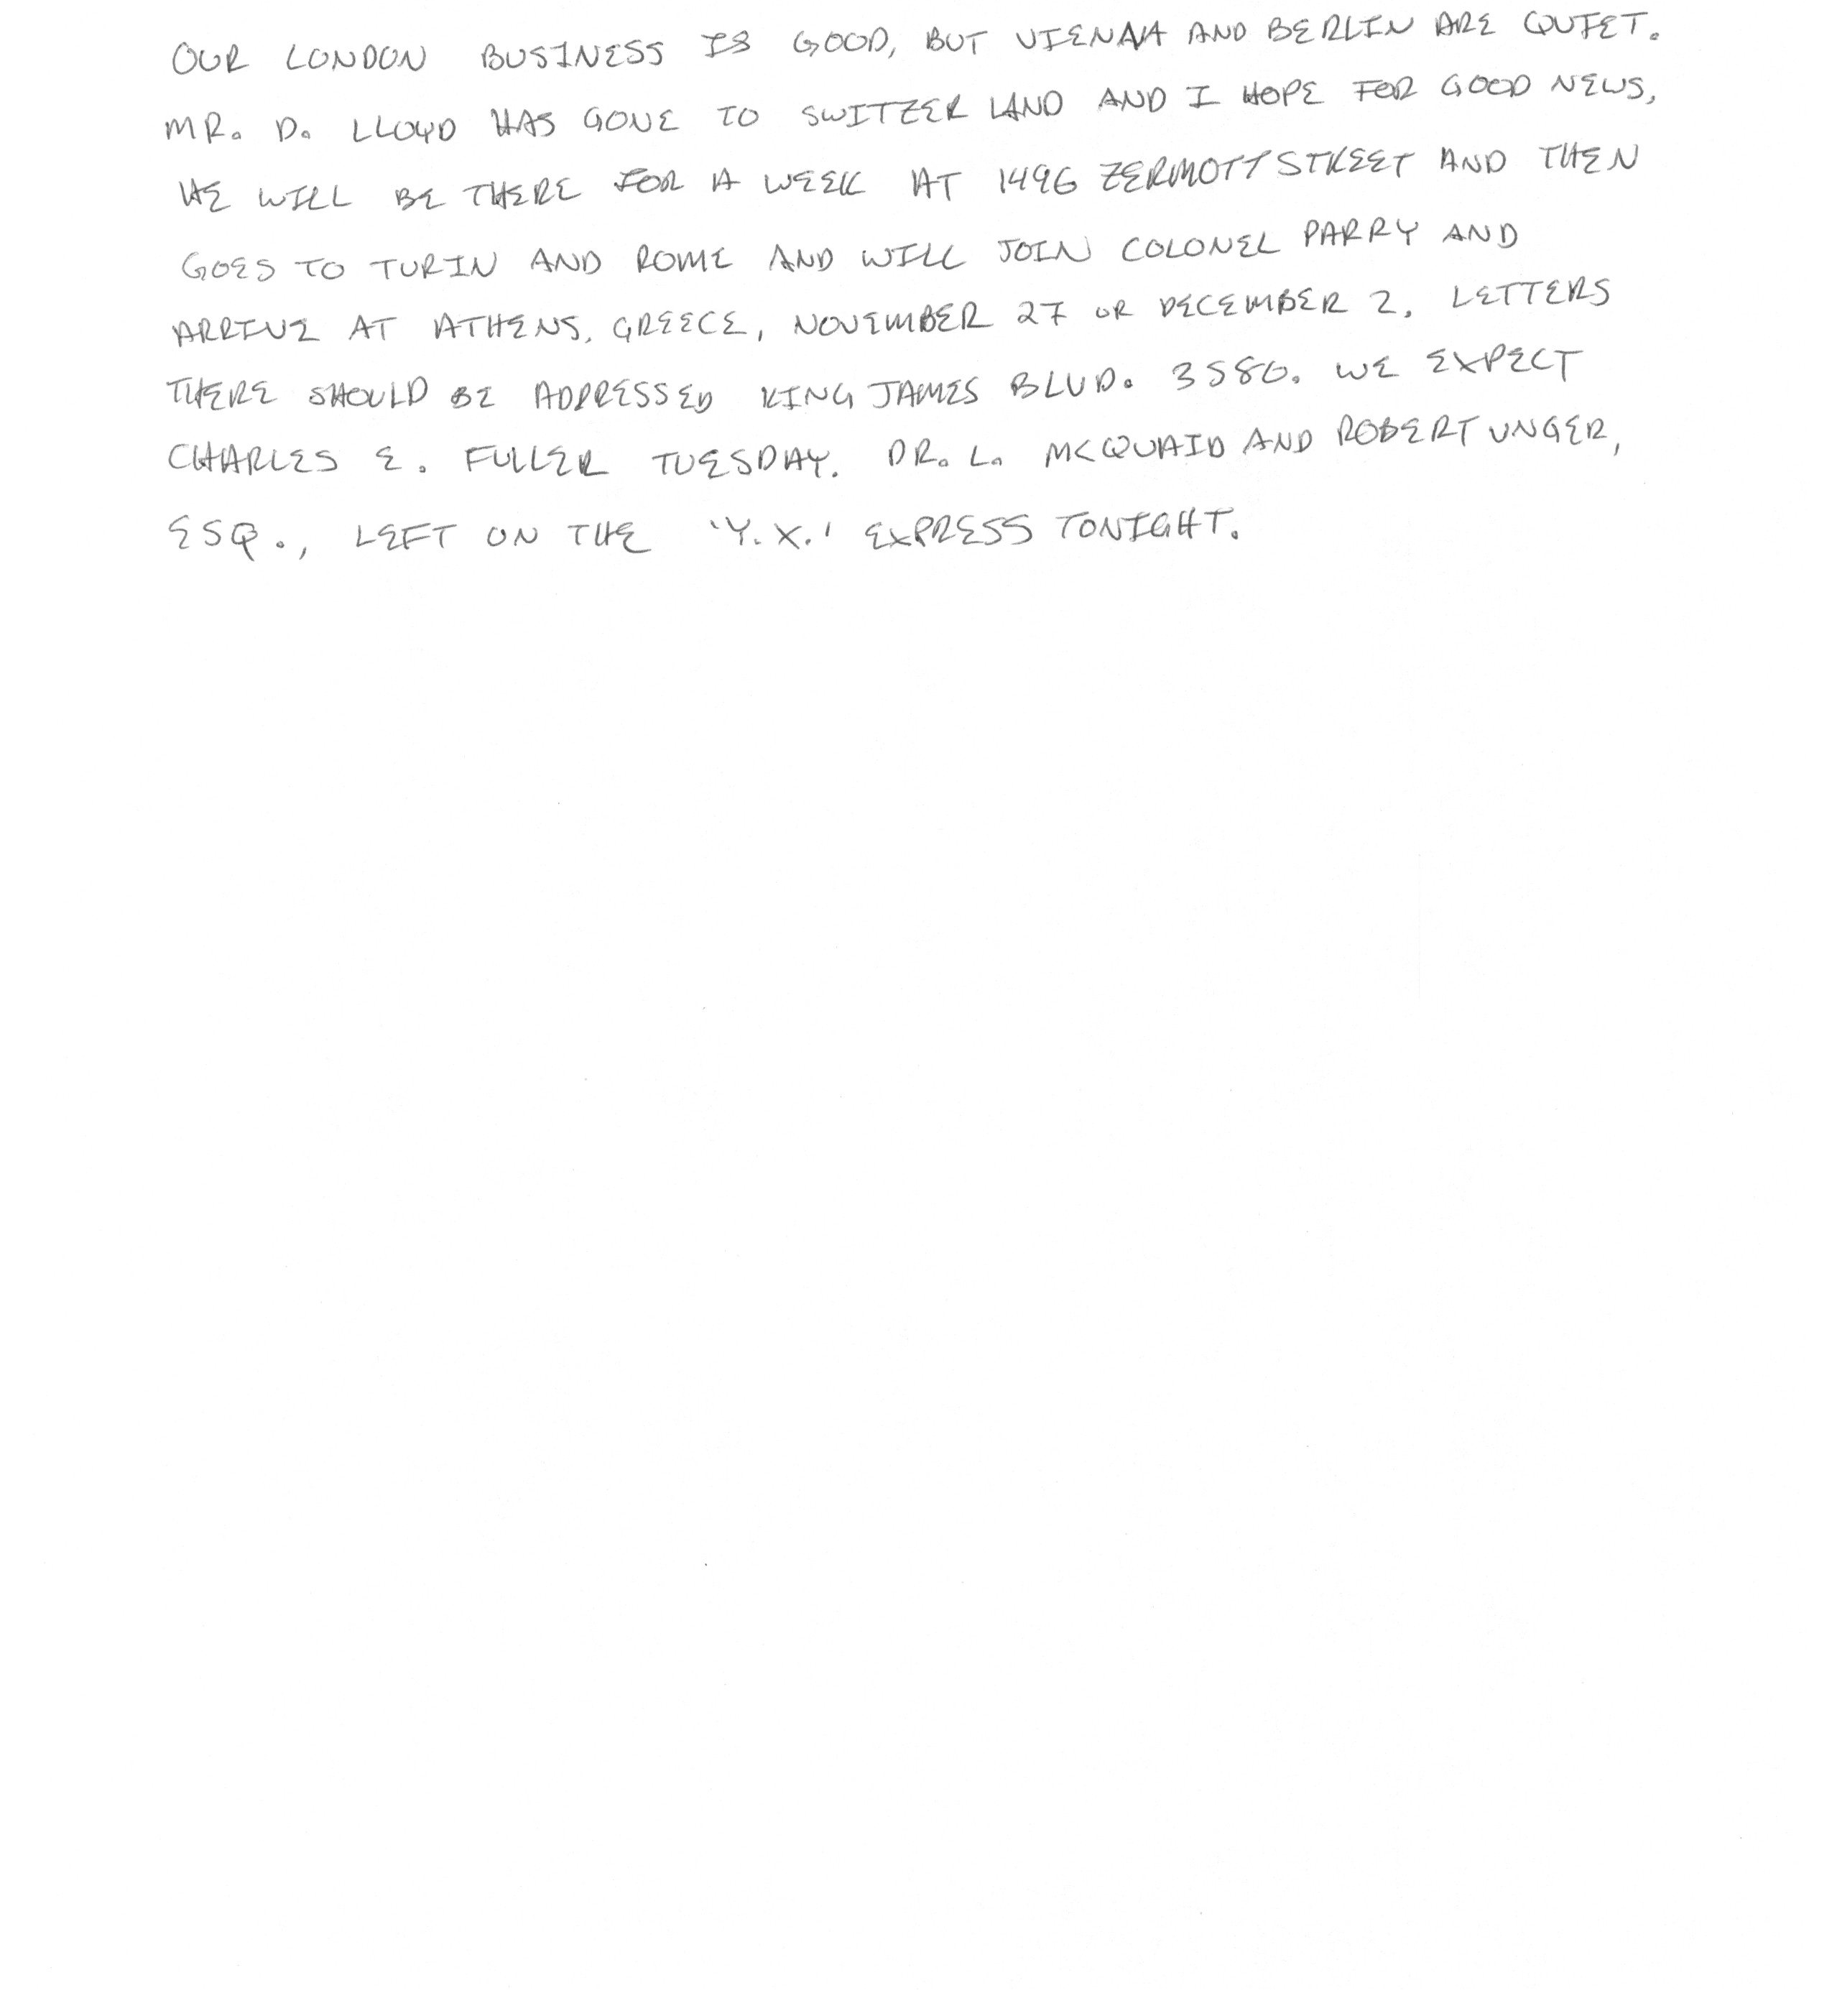 OUR LONDON BUSINESS IS GOOD, BUT VIENNA AND BERLIN ARE QUIET.
MR. D. LLOYD HAS GONE TO SWITZERLAND AND I HOPE FOR GOOD NEWS,
HE WILL BE THERE FOR A WEEK AT 1496 ZERMOTT STREET AND THEN
GOES TO TURIN AND ROME AND WILL JOIN COLONEL PARRY AND
ARRIVE AT ATHENS, GREECE, NOVEMBER 27 OR DECEMBER 2. LETTERS
THERE SHOULD BE ADDRESSED KING JAMES BLVD. 3580. WE EXPECT
CHARLES E. FULLER TUESDAY. DR. L. MCQUAID AND ROBERT UNGER,
ESQ., LEFT ON THE 'Y.X.' EXPRESS TONIGHT.